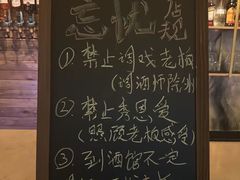 忘忧店规
①禁止调戏老板
(调酒师除外)
②禁止秀恩爱
(照顾老板感受)
③到酒馆不